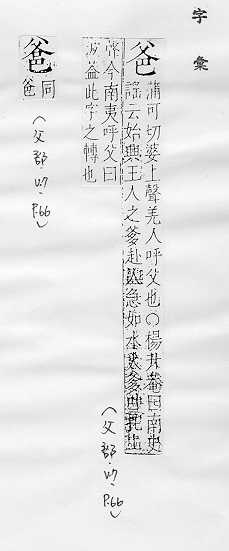 字彙
爸 蒲可切婆上聲羌人呼父也〇楊升菴曰南史
謠云始興王人之爹赴人急如水火
今南夷呼父曰
此字之轉也
(父部・巳・P.66)
同
爸
(父部・巳・P.66)